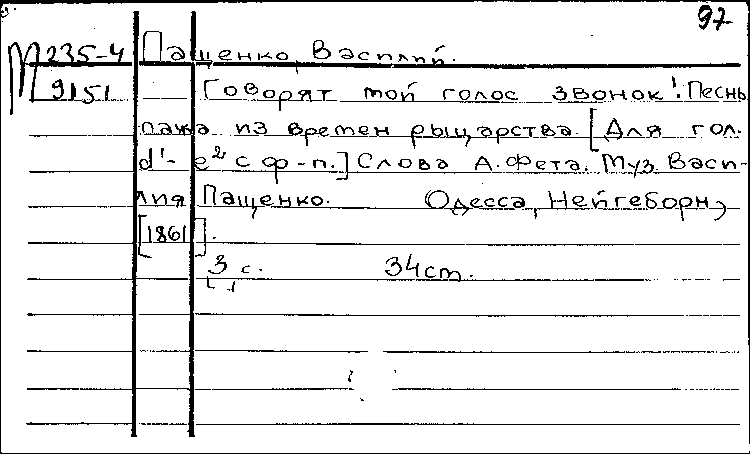 97
М 235-4 Пащенко, Василий.
9151 Говорят мой голос звонок! Песнь
пажа из времен рыцарства. [Для гол.
d¹- e² с ф-п.] Слова А. Фета. Муз. Васи-
лия Пащенко. Одесса, Нейгеборн,
[1861].
3 с. 34 cm.